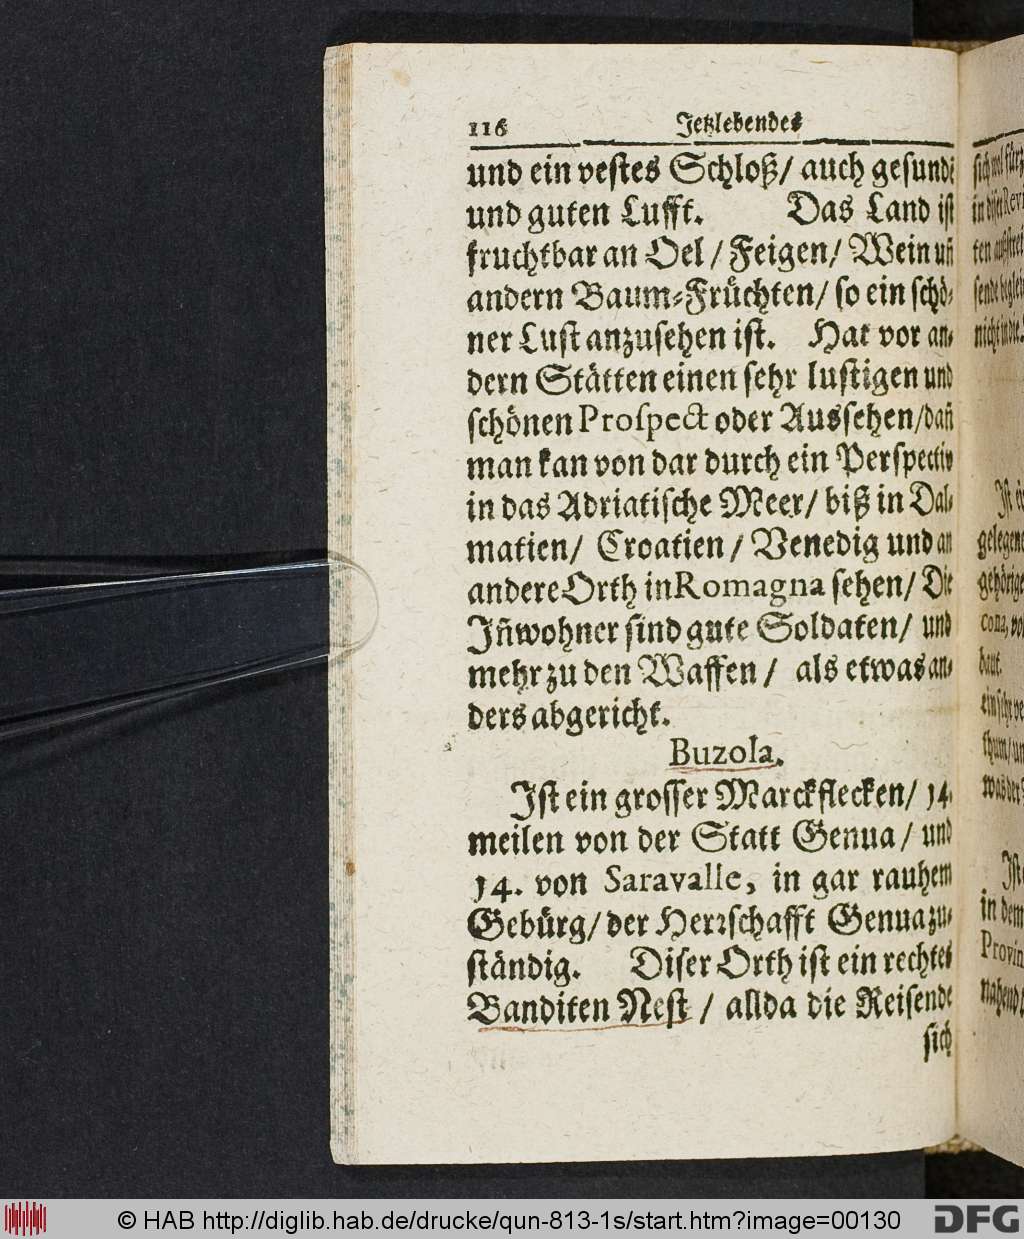 116 Jetzlebendes
und ein vestes Schloß/ auch gesunde
und guten Lufft. Das Land ist
fruchtbar an Oel / Feigen/ Wein un̄
andern Baum-Früchten/ so ein schö-
ner Lust anzusehen ist. Hat vor an-
dern Stätten einen sehr lustigen und
schönen Prospect oder Aussehen/dan̄
man kan von dar durch ein Perspectiv
in das Adriatische Meer/ biß in Dal-
matien/ Croatien / Venedig und an
andere Orth in Romagna sehen/ Die
In̄wohner sind gute Soldaten/ und
mehr zu den Waffen / als etwas an-
ders abgericht.
Buzola.
Ist ein grosser Marckflecken/ 14.
meilen von der Statt Genua / und
14. von Saravalle, in gar rauhem
Gebürg/ der Herrschafft Genua zu-
ständig. Diser Orth ist ein rechtes
Banditen Nest / allda die Reisende
sich
© HAB http://diglib.hab.de/drucke/qun-813-1s/start.htm?image=00130
DFG